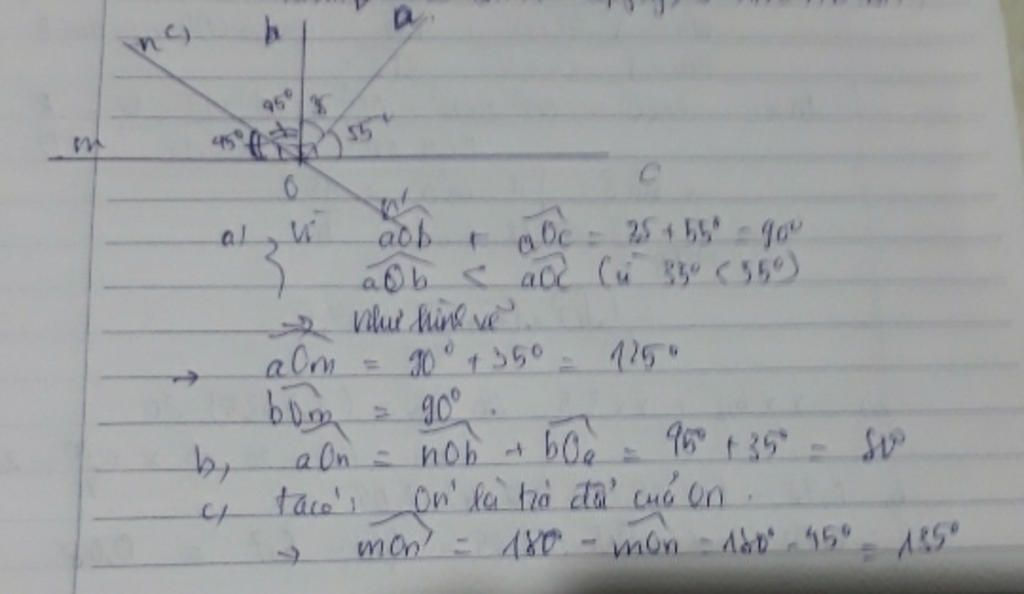 n c) b a
45° 35
45° 55°
m
O C
n'
a) Vì aOb + aOc = 35 + 55° = 90°
aOb < aOc (vì 35° < 55°)
→ như hình vẽ
→ aOm = 90° + 35° = 125°
bOm = 90°.
b, aOn = nOb + bOa = 45° + 35° = 80°
c, ta có: On' là tia đối của On.
→ mOn' = 180° - mOn = 180° - 45° = 135°